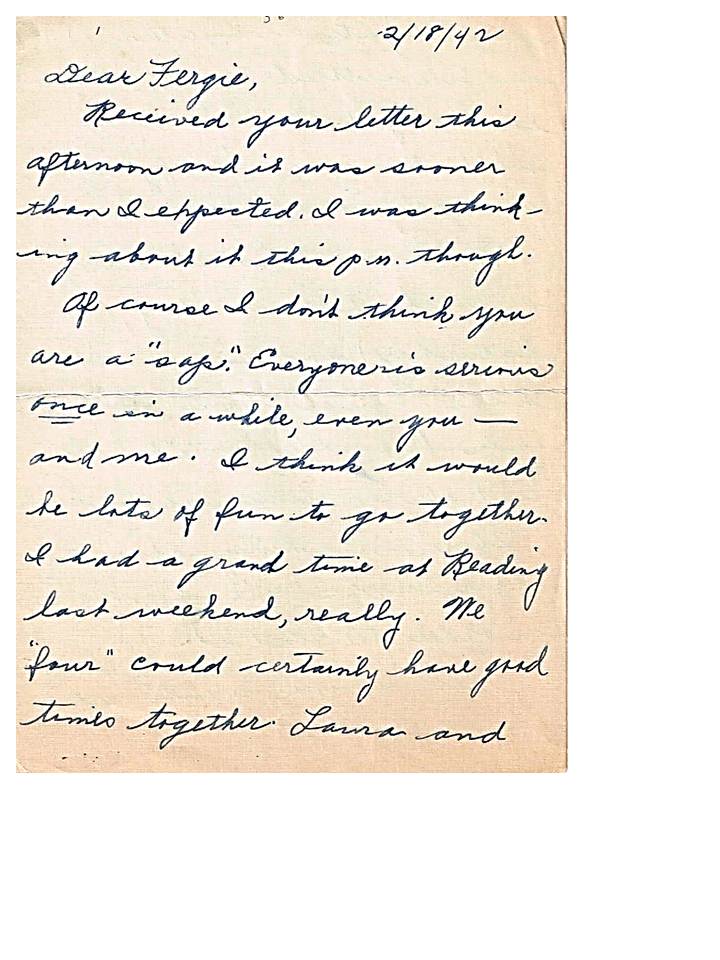 2/18/42
Dear Fergie,
Received your letter this
afternoon and it was sooner
than I expected. I was think-
ing about it this p.m. though.
Of course I don't think you
are a "sap". Everyone is serious
once in a while, even you —
and me. I think it would
be lots of fun to go together.
I had a grand time at Reading
last weekend, really. We
"four" could certainly have good
times together. Laura and